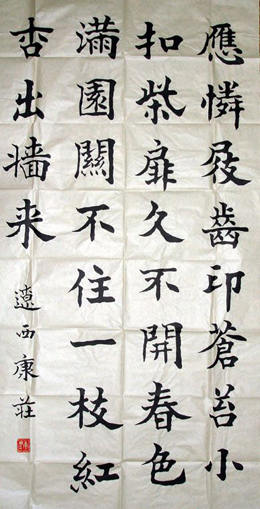 應憐屐齒印蒼苔小
扣柴扉久不開春色
滿園關不住一枝紅
杏出墙来
遼西康莊